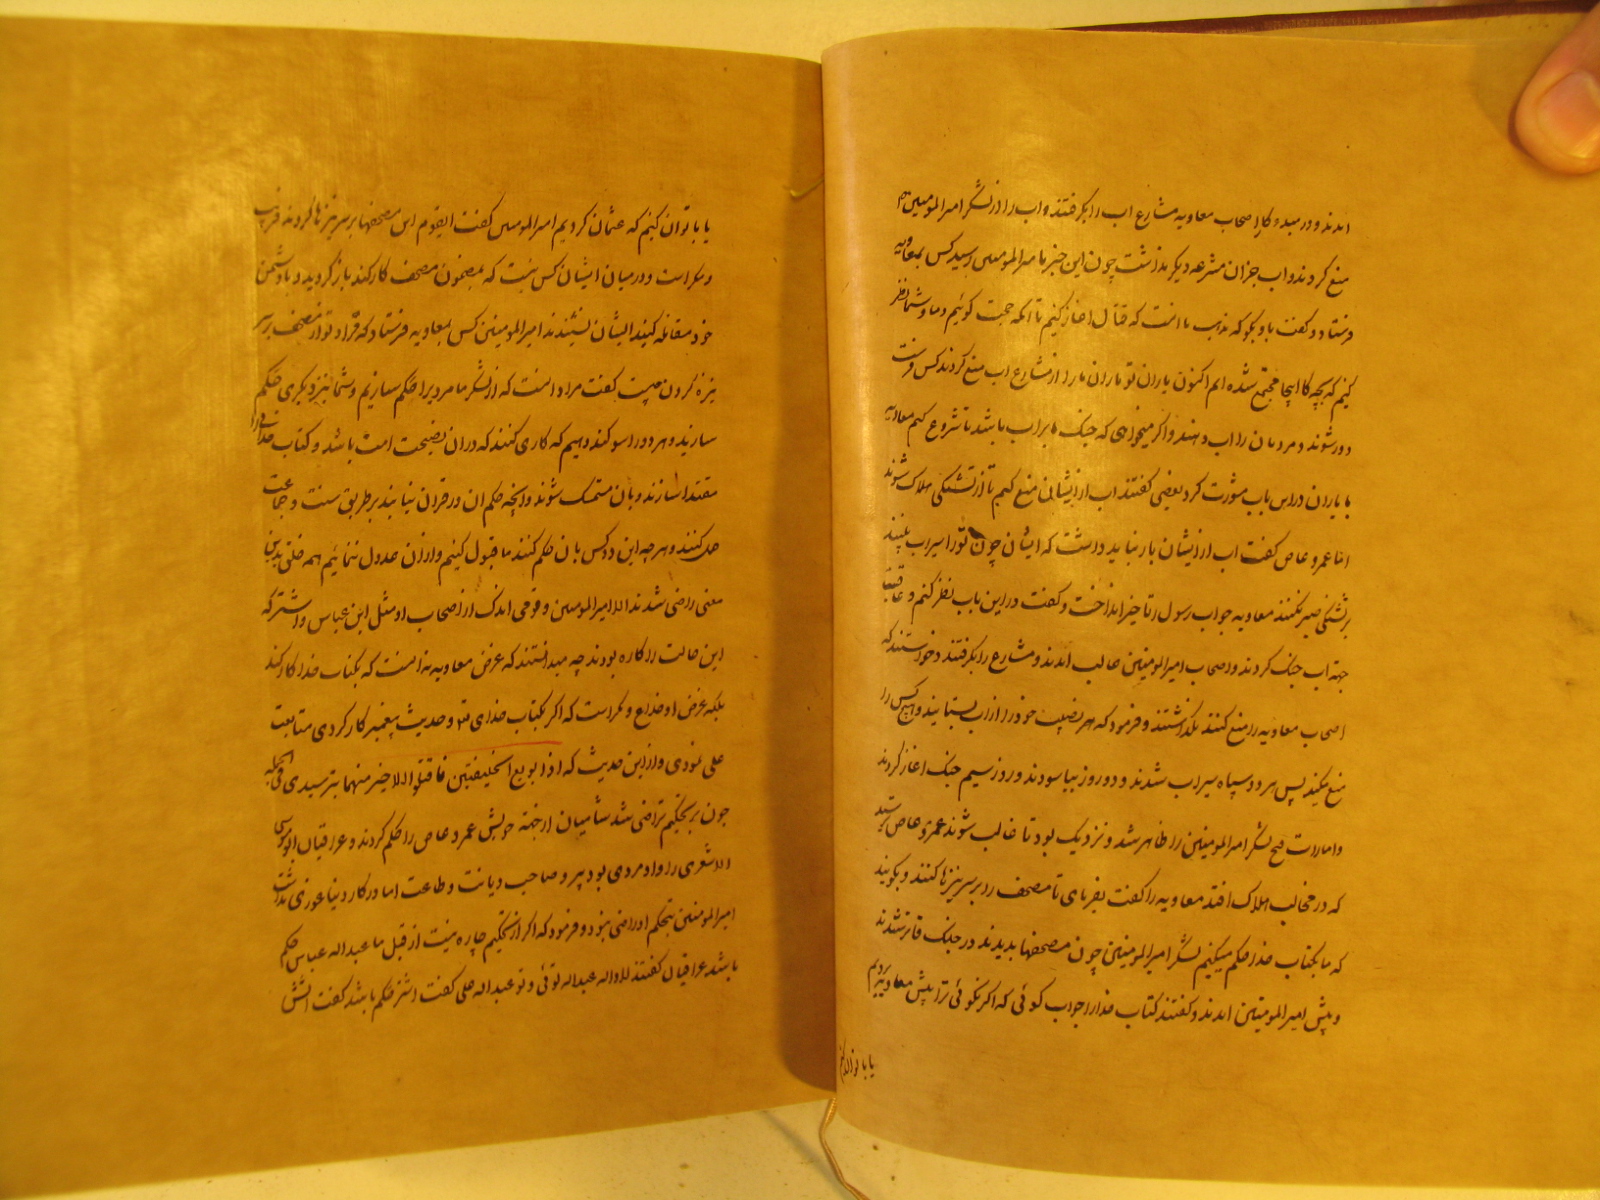 امدند و در مبدء کار اصحاب معاویه مشارع اب را بکرفتند و اب را از لشکر امیرالمومنین
منع کردند و اب جز ان مشرعه دیکر نداشت چون این خبر بامیرالمومنین رسید کس بمعاویه
فرستاد و کفت باو بکو که مذهب ما انست که قتال اغاز نکنیم تا انکه حجت کوئیم و ما و شما نظر
کنیم که بچه کار اینجا مجتمع شده ایم اکنون یاران تو یاران مارا از مشارع اب منع کردند کس فرست
دور شوند و مردمان را اب دهند و اکر میخواهی که جنک ما بر اب باشد تا شروع کنیم معاویه
با یاران در این باب مشورت کرد بعضی کفتند اب از ایشان منع کنیم تا از تشنکی هلاک شوند
اما عمرو عاص کفت اب از ایشان باز نباید داشت که ایشان چون تو را سیراب بینند
بر تشنکی صبر نکنند معاویه جواب رسول را تاخیر انداخت و کفت در این باب نظر کنم و عاقبة
جهة اب جنک کردند و اصحاب امیرالمومنین غالب امدند و مشارع را بکرفتند و خواستند که
اصحاب معاویه را منع کنند نکذاشتند و فرمود که هر نصیب خود را از اب بستانید و هیچکس را
منع مکنید پس هر دو سپاه سیراب شدند و دو روز بیاسودند و روز سیم جنک اغاز کردند
و امارات فتح لشکر امیرالمومنین را ظاهر شد و نزدیک بود تا غالب شوند عمرو عاص ترسید
که در مخالب هلاک افتد معاویه را کفت بفرمای تا مصحف را بر سر نیزها کنند و بکویند
که ما بکتاب خدا حکم میکنیم لشکر امیرالمومنین چون مصحفها بدیدند در جنک فاتر شدند
و پیش امیرالمومنین امدند و کفتند کتاب خدا را جواب کوئی که اکر نکوئی ترا پیش معاویه بریم
یا با تو ان کنیم
یا با تو ان کنیم که عثمان کردیم امیرالمومنین کفت ایقوم این مصحفها بر سر نیزها کردند فریب
و مکر است و در میان ایشان کس نیست که بمضمون مصحف کار کند باز کردید و با دشمن
خود مقاتله کنید ایشان نشنیدند امیرالمومنین کس بمعاویه فرستاد که مراد تو از مصحف بر سر
نیزه کردن چیست کفت مراد انست که از لشکر ما مردیرا حکم سازیم و شما نیز دیکری حکم
سازید و هر دو را سوکند دهیم که کاری کنند که در ان نصیحت امت باشد و کتاب خدا را
مقتدا سازند و بان متمسک شوند و انچه حکم ان در قران نیابند بر طریق سنت و جماعت
حل کنند و هر چه این دو کس بان حکم کنند ما قبول کنیم و از ان عدول ننمائیم همه خلق بدین
معنی راضی شدند الا امیرالمومنین و قومی اندک از اصحاب او مثل ابن عباس و اشتر که
این حالت را کاره بودند چه میدانستند که غرض معاویه نه انست که بکتاب خدا کار کند
بلکه غرض او خداع و مکر است که اکر بکتاب خدای و حدیث پیغمبر کار کردی متابعت
علی نمودی و از این حدیث که اذا بویع الخلیفتین فاقتلوا الاخیر منهما بترسیدی فی الجمله
چون بر تحکیم تراضی شد شامیان از جهة خویش عمرو عاص را حکم کردند و عراقیان ابو موسی
الاشعری را و او مردی بود پیر و صاحب دیانت و طاعت اما در کار دنیا غوری نداشت
امیرالمومنین بتحکیم او راضی نبود و فرمود که اکر از تحکیم چاره نیست از قبل ما عبداله عباس حکم
باشد عراقیان کفتند لا واله عبداله توئی و تو عبداله علی کفت اشتر حکم باشد کفت اتش